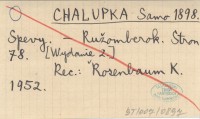 CHALUPKA Samo 1898.
Spevy. – Ružomberok. Stron
78. [Wydanie 2.]
Rec.: Rosenbaum K.
1952.